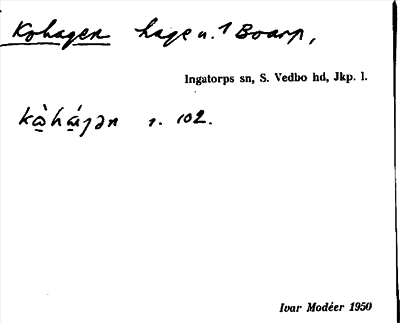 Kohagen hage u. 1 Boarp,
Ingatorps sn, S. Vedbo hd, Jkp. l.
s. 102.
Ivar Modéer 1950